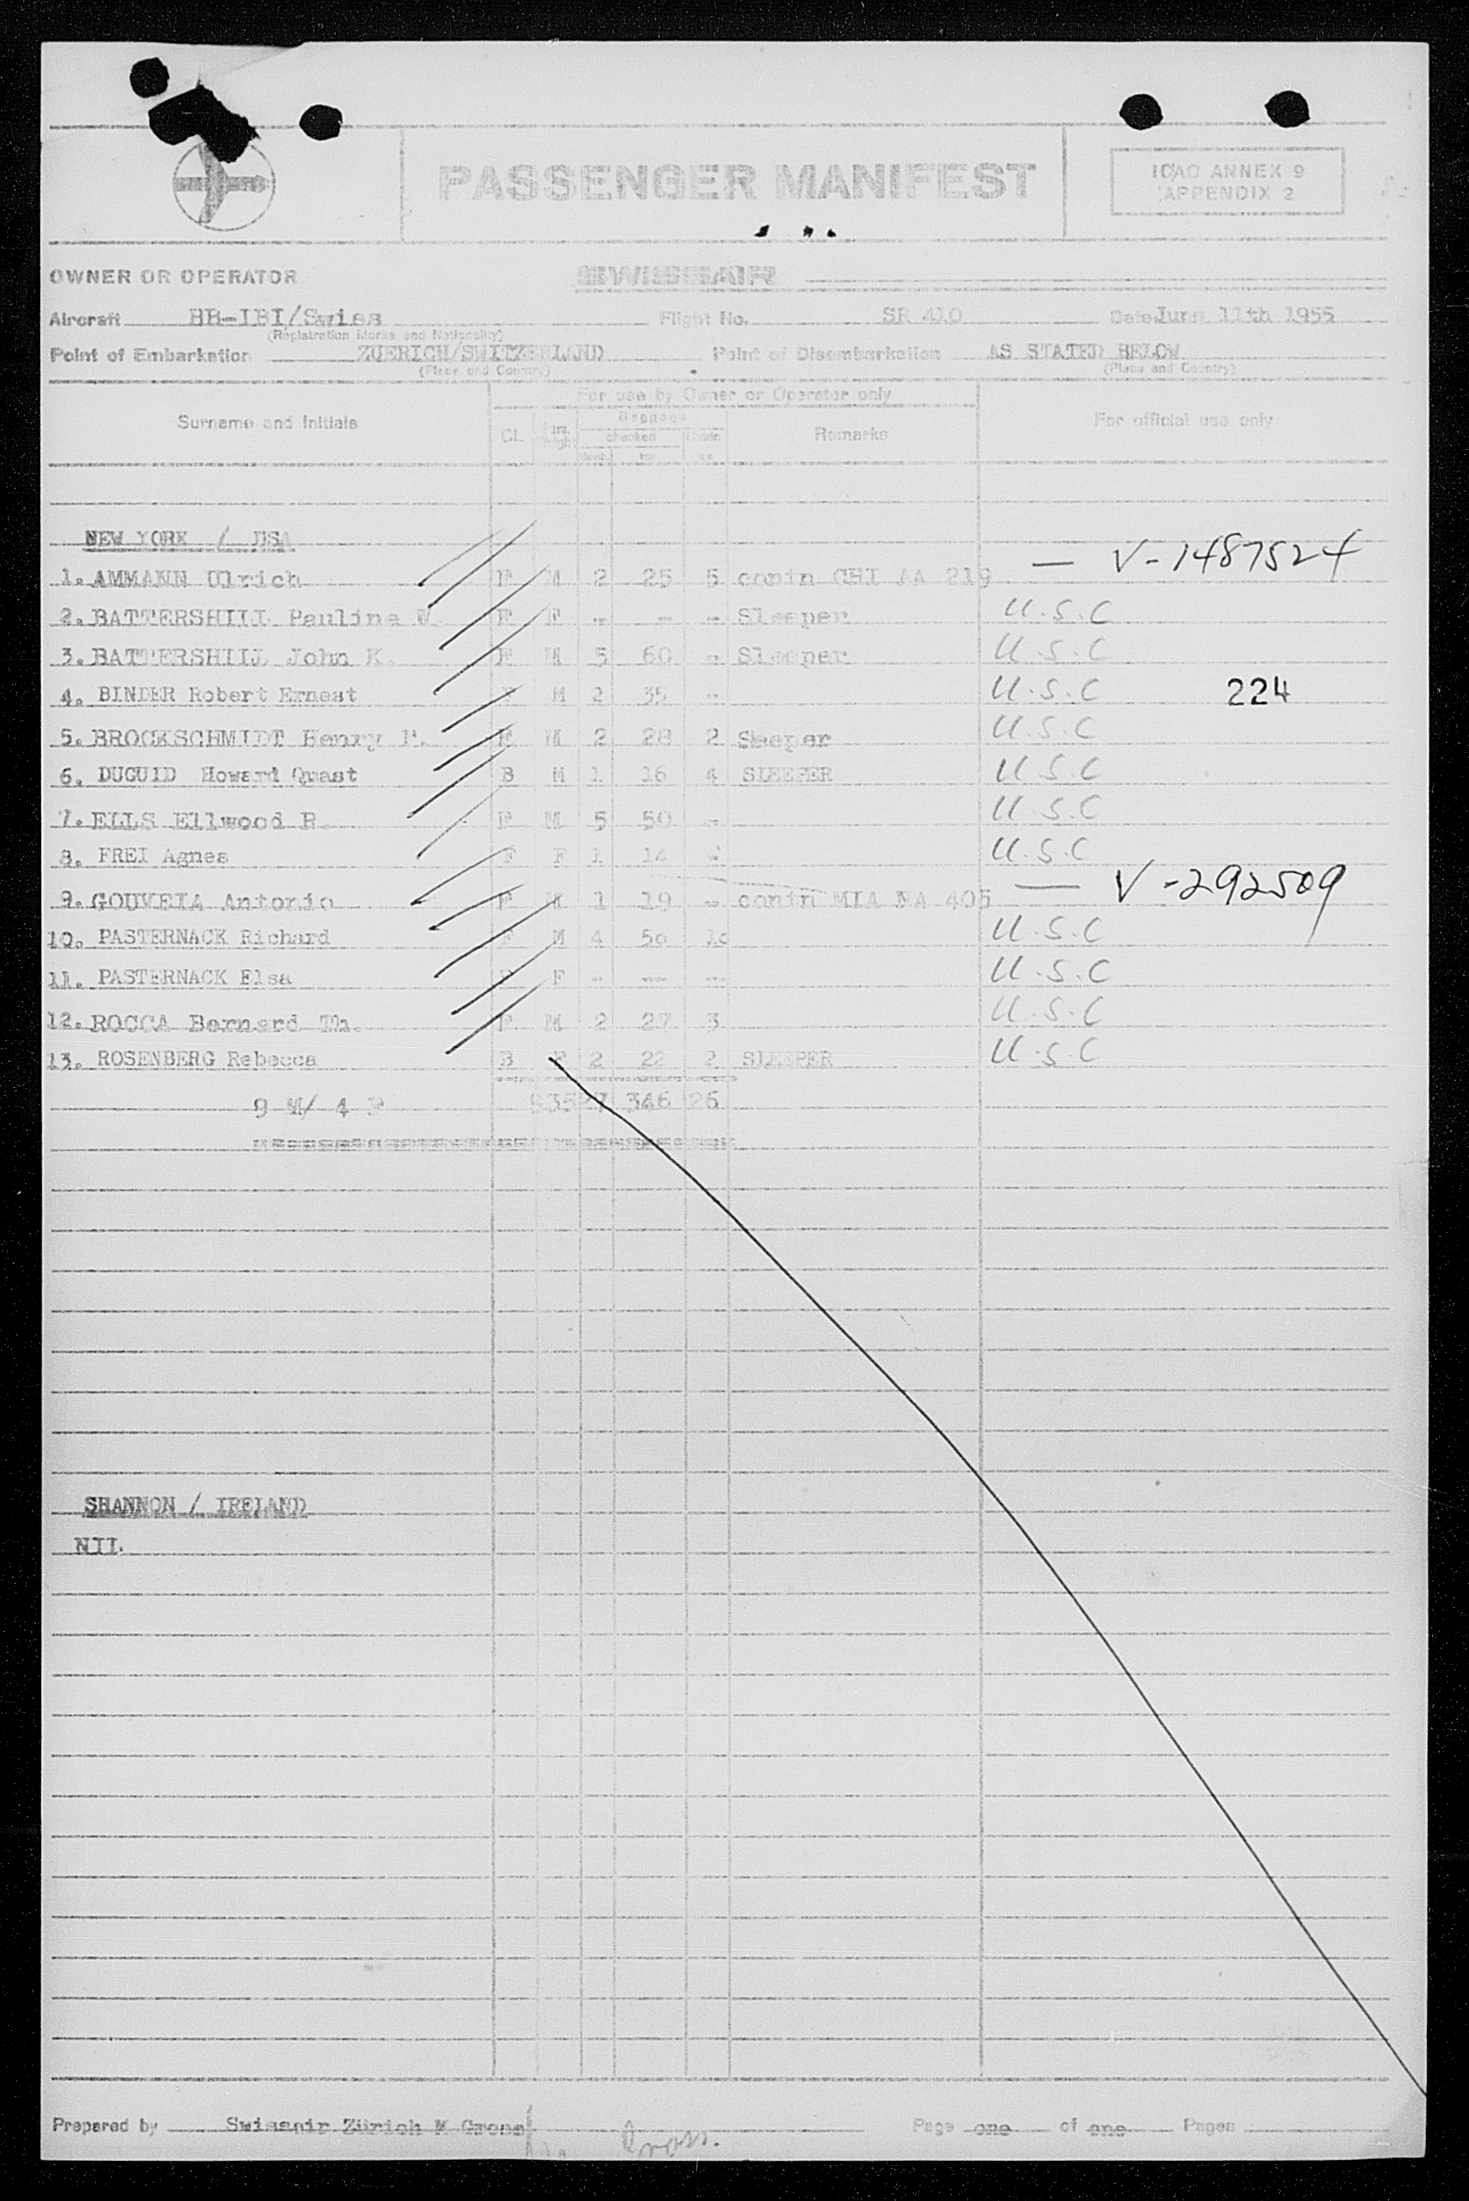 PASSENGER MANIFEST
ICAO ANNEX 9
APPENDIX 2
OWNER OR OPERATOR SWISSAIR
Aircraft HB-IBI/Swiss Flight No. SR 410 Date June 11th 1955
(Registration Marks and Nationality)
Point of Embarkation ZUERICH/SWITZERLAND Point of Disembarkation AS STATED BELOW
(Place and Country) (Place and Country)
For use by Owner or Operator only
Surname and Initials Cl. Baggage Remarks For official use only
checked
NEW YORK / USA
1. AMMANN Ulrich F M 2 25 5 connin CHI AA 219 — V-1487524
2. BATTERSHILL Pauline W. F F - - - Sleeper U.S.C
3. BATTERSHILL John K. F M 5 60 - Sleeper U.S.C
4. BINDER Robert Ernest F M 2 35 - U.S.C 224
5. BROCKSCHMIDT Henry F. F M 2 28 2 Sleeper U.S.C
6. DUGUID Howard Quast B M 1 16 4 SLEEPER U.S.C
7. ELLS Ellwood R F M 5 50 - U.S.C
8. FREI Agnes F F 1 14 - U.S.C
9. GOUVEIA Antonio F M 1 19 - connin MIA NA 405 — V-292509
10. PASTERNACK Richard F M 4 50 10 U.S.C
11. PASTERNACK Elsa F F - - - U.S.C
12. ROCCA Bernard Th. F M 2 27 3 U.S.C
13. ROSENBERG Rebecca B F 2 22 2 SLEEPER U.S.C
9 M/ 4 F 935 27 346 26
SHANNON / IRELAND
NIL
Prepared by Swissair Zürich M Gross Page one of one Pages
Gross.